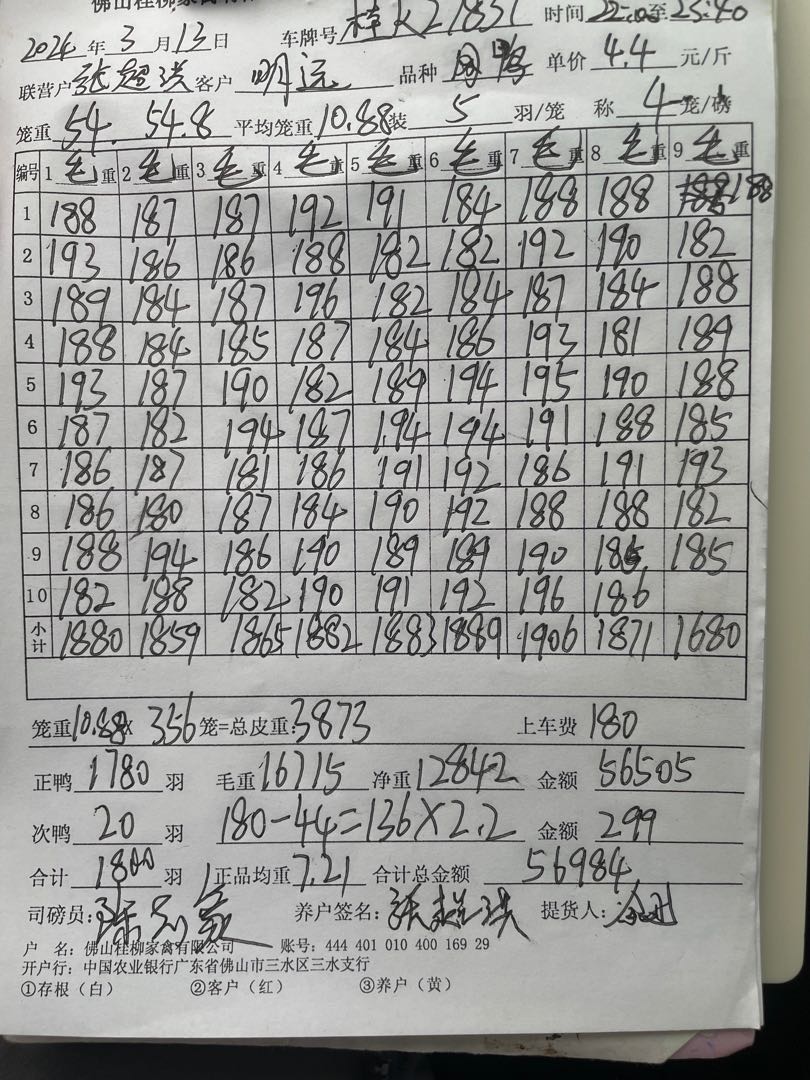 佛山桂柳家禽有限
2024年3月13日 车牌号 时间22:00至23:40
联营户张超洪客户明远 品种 单价4.4元/斤
笼重54. 54.8平均笼重10.88装5羽/笼 称4笼/磅
编号 1毛重 2毛重 3毛重 4毛重 5毛重 6毛重 7毛重 8毛重 9毛重
1 188 187 187 192 191 184 188 188 188
2 193 186 186 188 182 182 192 190 182
3 189 184 187 196 182 184 187 184 188
4 188 184 185 187 184 186 193 181 189
5 193 187 190 182 189 194 195 190 188
6 187 182 194 187 194 194 191 188 185
7 186 187 181 186 191 192 186 191 193
8 186 180 187 184 190 192 188 188 182
9 188 194 186 190 189 189 190 185 185
10 182 188 182 190 191 192 196 186
小计 1880 1859 1865 1882 1883 1889 1906 1871 1680
笼重10.88X 356笼=总皮重:3873 上车费180
正鸭1780羽 毛重16715净重12842金额56505
次鸭20羽 180-44=136X2.2 金额299
合计1800羽 正品均重7.21 合计总金额56984
司磅员: 养户签名:张超洪 提货人:
户 名:佛山桂柳家禽有限公司 账号:444 401 010 400 169 29
开户行:中国农业银行广东省佛山市三水区三水支行
①存根(白) ②客户(红) ③养户(黄)